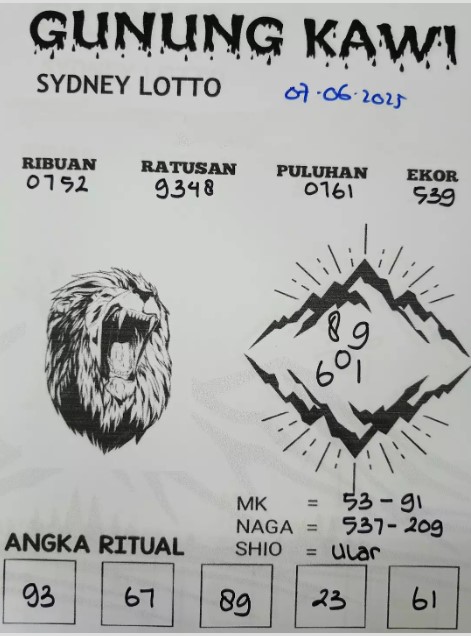 GUNUNG KAWI
SYDNEY LOTTO 07-06-2025
RIBUAN RATUSAN PULUHAN EKOR
0752 9348 0761 539
89
601
MK = 53 - 91
NAGA = 537 - 209
SHIO = ular
ANGKA RITUAL
93 67 89 23 61